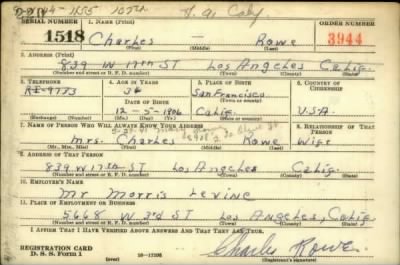 SERIAL NUMBER 1. NAME (Print) ORDER NUMBER
1518 Charles Rowe 3944
(First) (Middle) (Last)
2. ADDRESS (Print)
839 W 17th ST Los Angeles Calif.
(Number and street or R. F. D. number) (Town) (County) (State)
3. TELEPHONE 4. AGE IN YEARS 5. PLACE OF BIRTH 6. COUNTRY OF CITIZENSHIP
RI-9773 34 San Francisco
DATE OF BIRTH (Town or county)
12-5-1906 Calif. U.S.A.
(Exchange) (Number) (Mo.) (Day) (Yr.) (State or country)
7. NAME OF PERSON WHO WILL ALWAYS KNOW YOUR ADDRESS 8. RELATIONSHIP OF THAT PERSON
Mrs. Charles Rowe Wife
(Mr., Mrs., Miss) (First) (Middle) (Last)
9. ADDRESS OF THAT PERSON
839 W 17th ST Los Angeles Calif.
(Number and street or R. F. D. number) (Town) (County) (State)
10. EMPLOYER'S NAME
Mr Morris Levine
11. PLACE OF EMPLOYMENT OR BUSINESS
5668 W 3rd ST Los Angeles, Calif.
(Number and street or R. F. D. number) (Town) (County) (State)
I AFFIRM THAT I HAVE VERIFIED ABOVE ANSWERS AND THAT THEY ARE TRUE.
REGISTRATION CARD
D. S. S. Form 1 16-17105 Charles Rowe
(Registrant's signature)